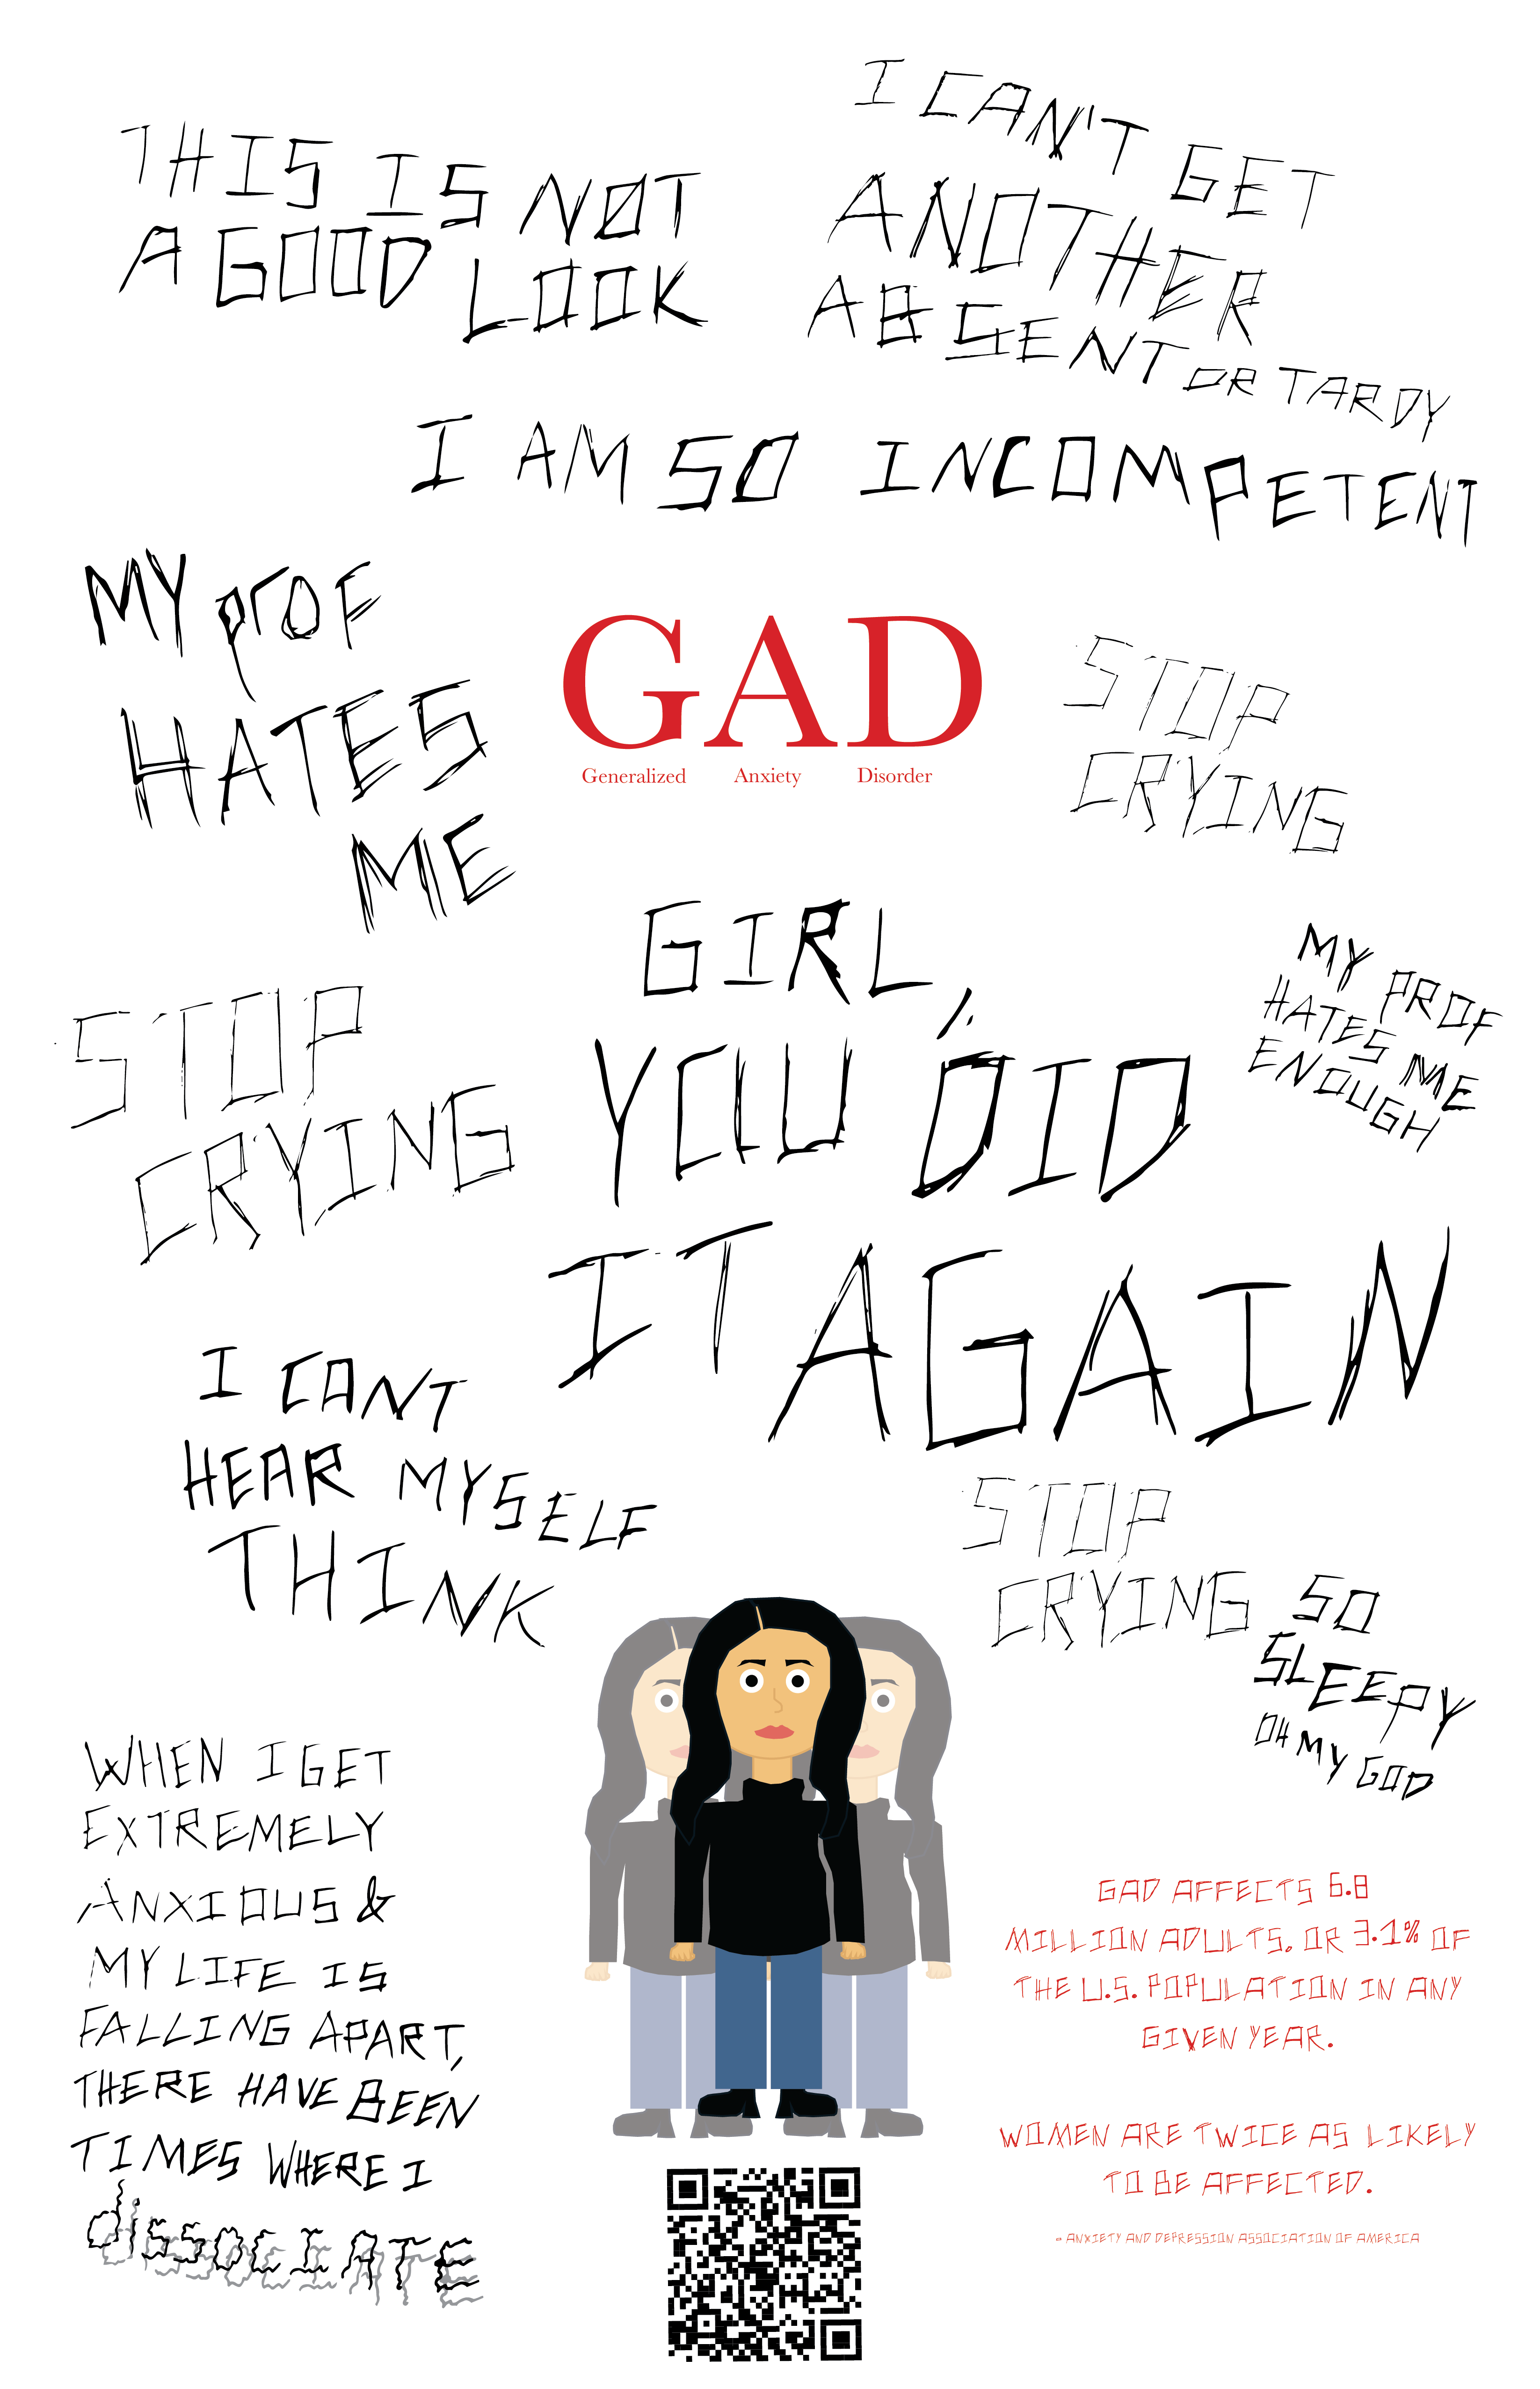 THIS IS NOT
A GOOD LOOK
I CAN'T GET
ANOTHER
ABSENT OR TARDY
I AM SO INCOMPETENT
MY prOF
HATES
ME
GAD
Generalized Anxiety Disorder
STOP
CRYING
GIRL,
YOU DID
IT AGAIN
MY PROF
HATES ME
ENOUGH
STOP
CRYING
I CANT
HEAR MYSELF
THINK
STOP
CRYING
SO
SLEEPY
OH MY GOD
WHEN I GET
EXTREMELY
ANXIOUS &
MY LIFE IS
FALLING APART,
THERE HAVE BEEN
TIMES WHERE I
dissOCIATE
GAD AFFECTS 6.8
MILLION ADULTS, OR 3.1% OF
THE U.S. POPULATION IN ANY
GIVEN YEAR.
WOMEN ARE TWICE AS LIKELY
TO BE AFFECTED.
- ANXIETY AND DEPRESSION ASSOCIATION OF AMERICA